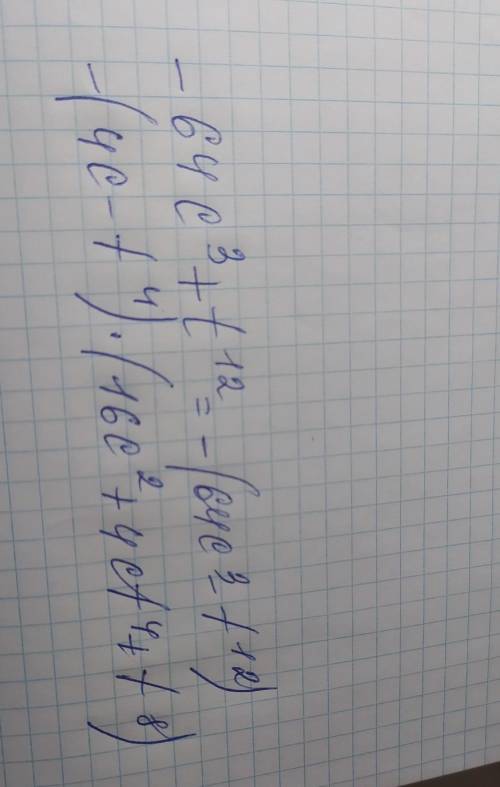 - 64c³ + t¹² = - (64c³ - t¹²)
- (4c - t⁴) · (16c² + 4ct⁴ + t⁸)